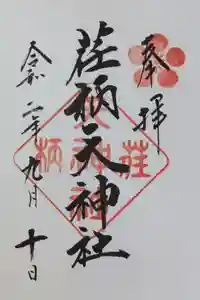 奉拝
荏柄天神社
令和二年九月十日
荏柄天神社